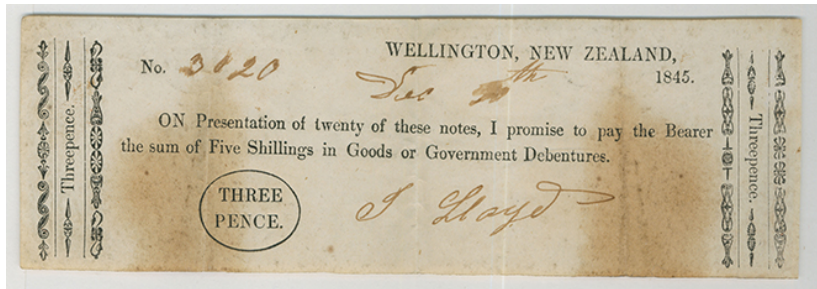 WELLINGTON, NEW ZEALAND,
No. 3020
Dec 20th 1845.
ON Presentation of twenty of these notes, I promise to pay the Bearer
the sum of Five Shillings in Goods or Government Debentures.
THREE
PENCE.
J Lloyd
Threepence.
Threepence.